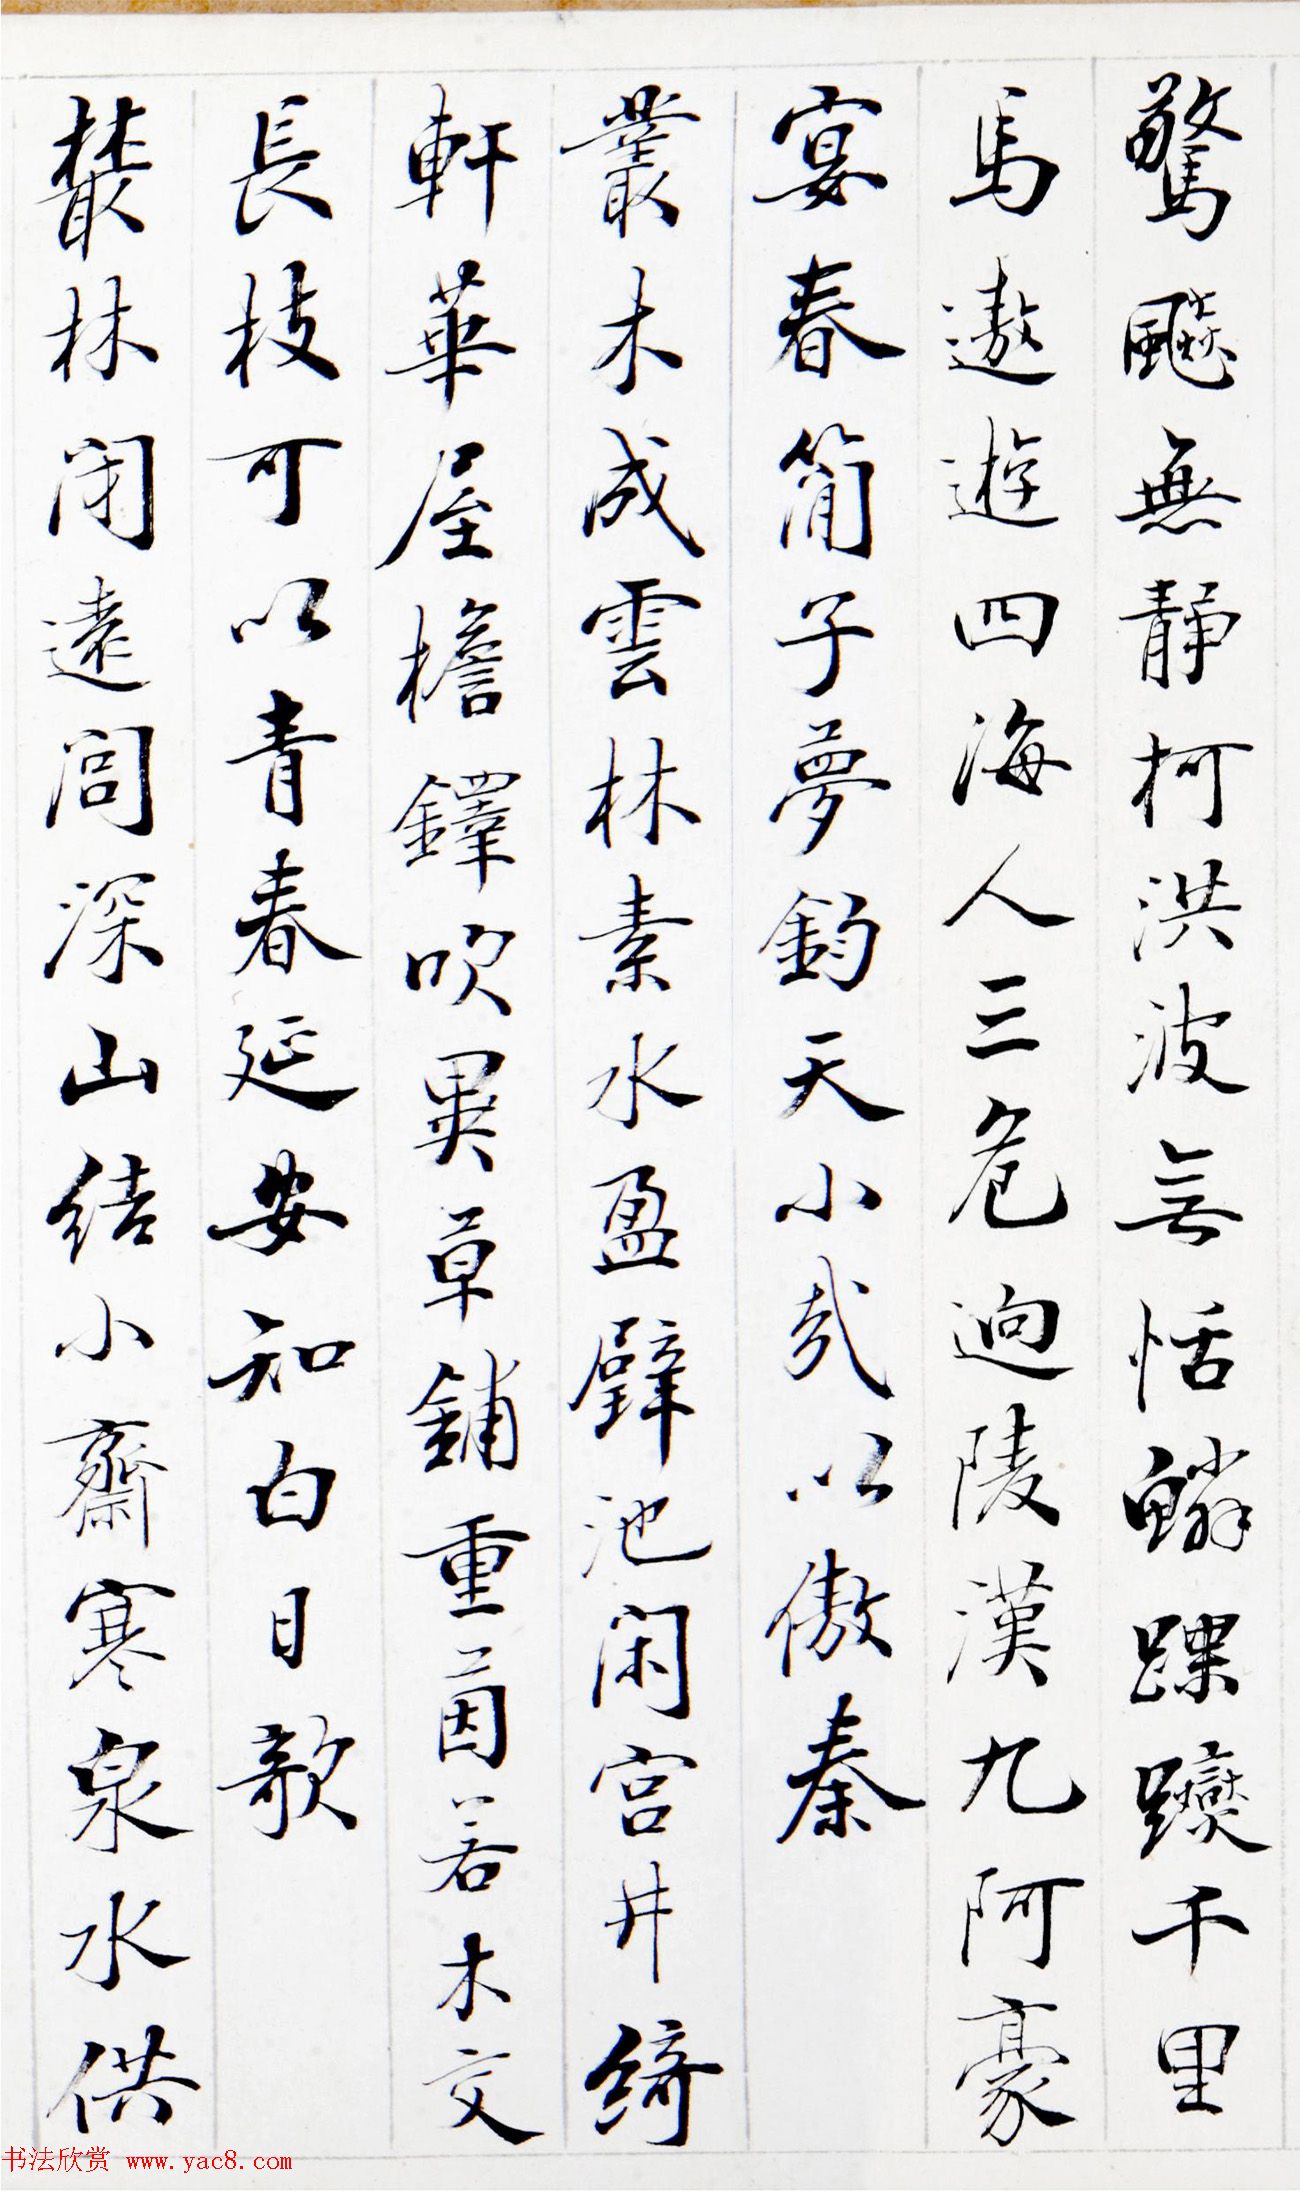 驚飈無靜柯洪波無恬鱗踝躞千里
馬遨遊四海人三危迥陵漢九阿豪
宴春簡子夢鈞天小哉以傲秦
叢木成雲林素水盈壁池閑宮井綺
軒華屋檐鐸吹異草鋪重茵若木交
長枝可以青春延安知白日歌
藂林閉遠閭深山結小齋寒泉水供
书法欣赏 www.yac8.com